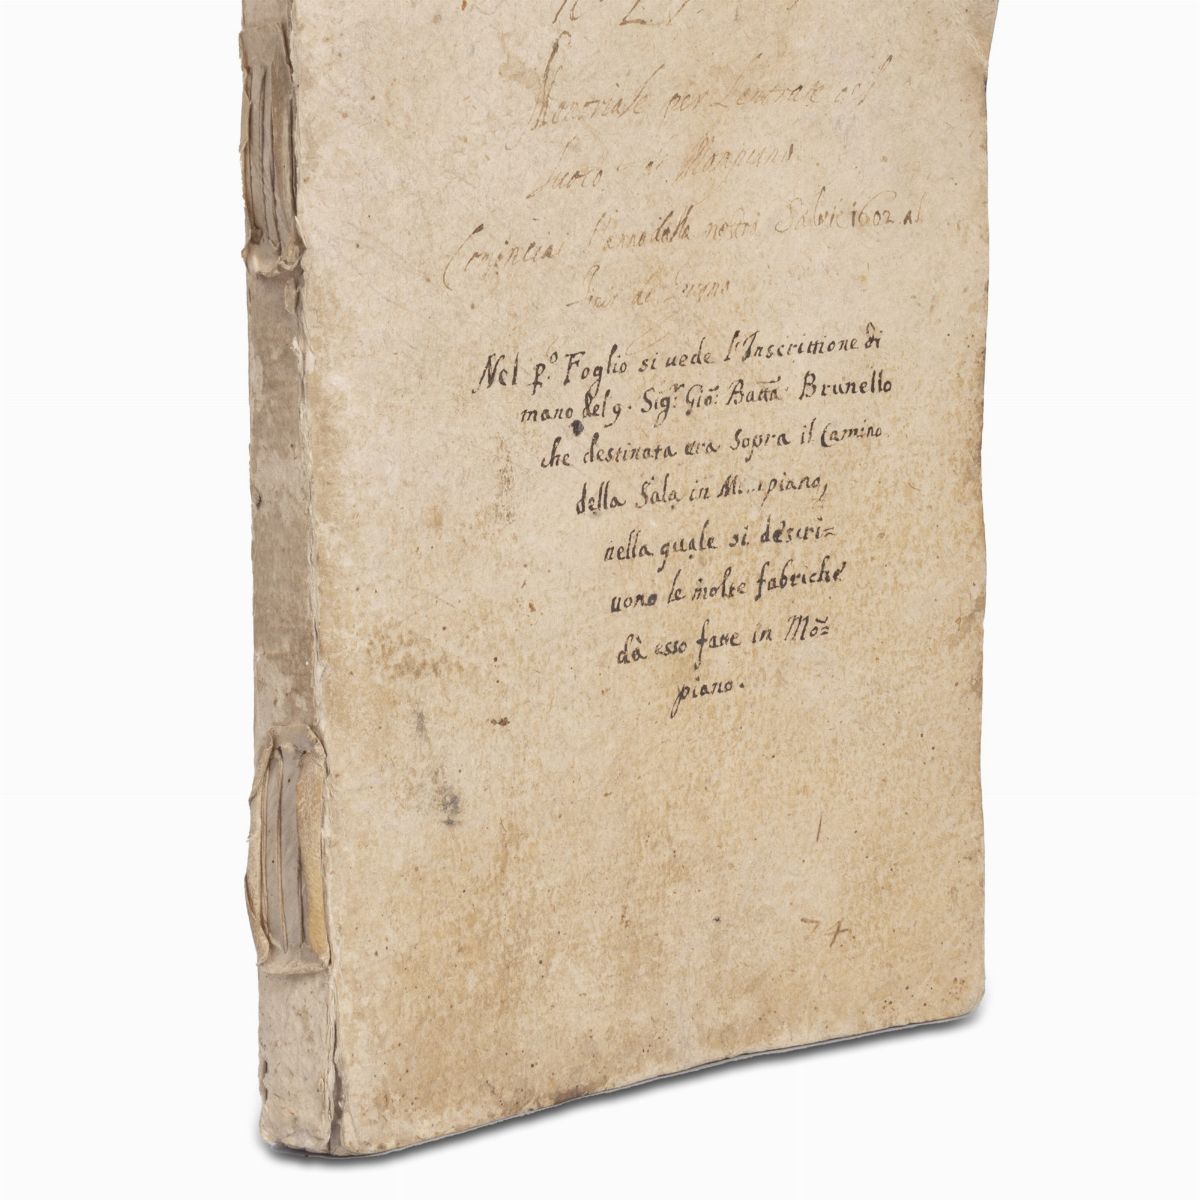 Nº L.
Memoriale per l'entrate del
luoco di
Comincia l'anno dalla nostra Salute 1602 al
di Zugno
Nel p.º Foglio si uede l'Inscrittione di
mano del q. Sig.r Gio: Batta Brunello
che destinata era Sopra il Camino
della Sala in piano,
nella quale si descri=
uono le molte fabriche
dà esso fatte in Mo=
piano.
74